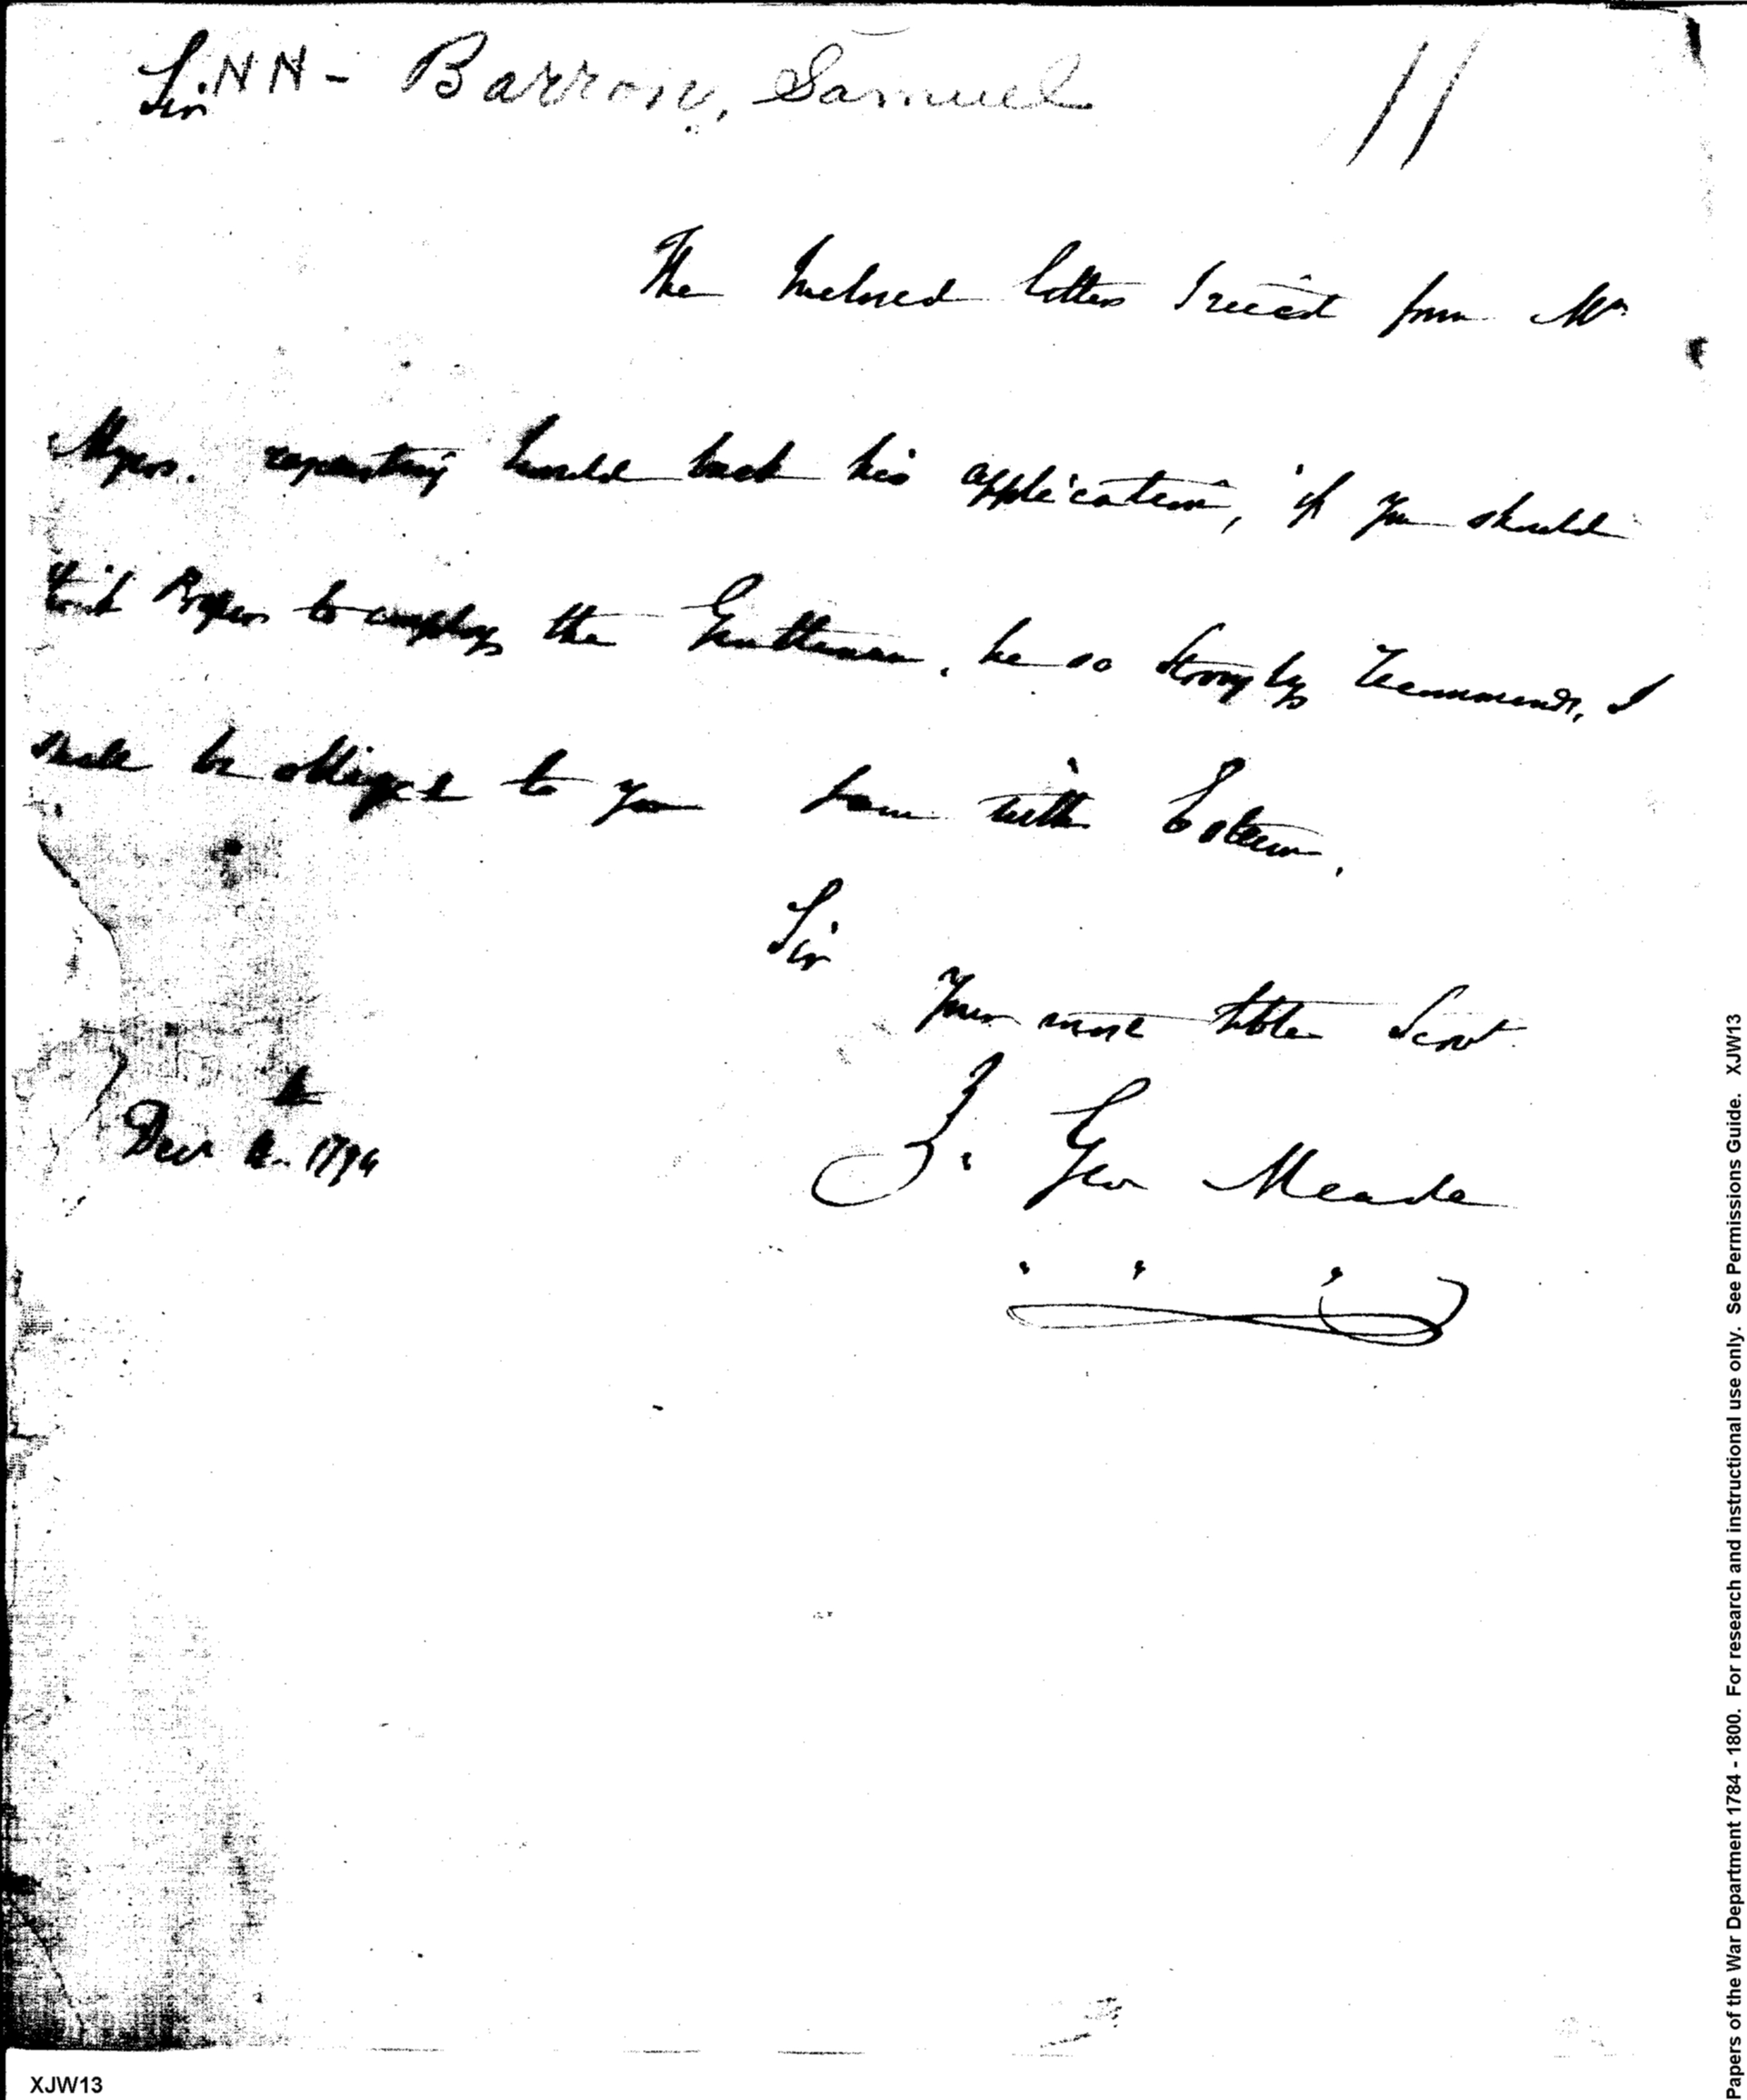 Sir NN - Barron, Samuel 11
The Inclosed letters I recead from Mr
Myers. requesting I would back his application, if you should
think Proper to employ the Gentleman, he so strongly recommends, I
shall be obliged to you I am with Esteem,
Sir
Your most hble Servt
Geo Meade
Decr 1794
XJW13
Papers of the War Department 1784 - 1800. For research and instructional use only. See Permissions Guide. XJW13